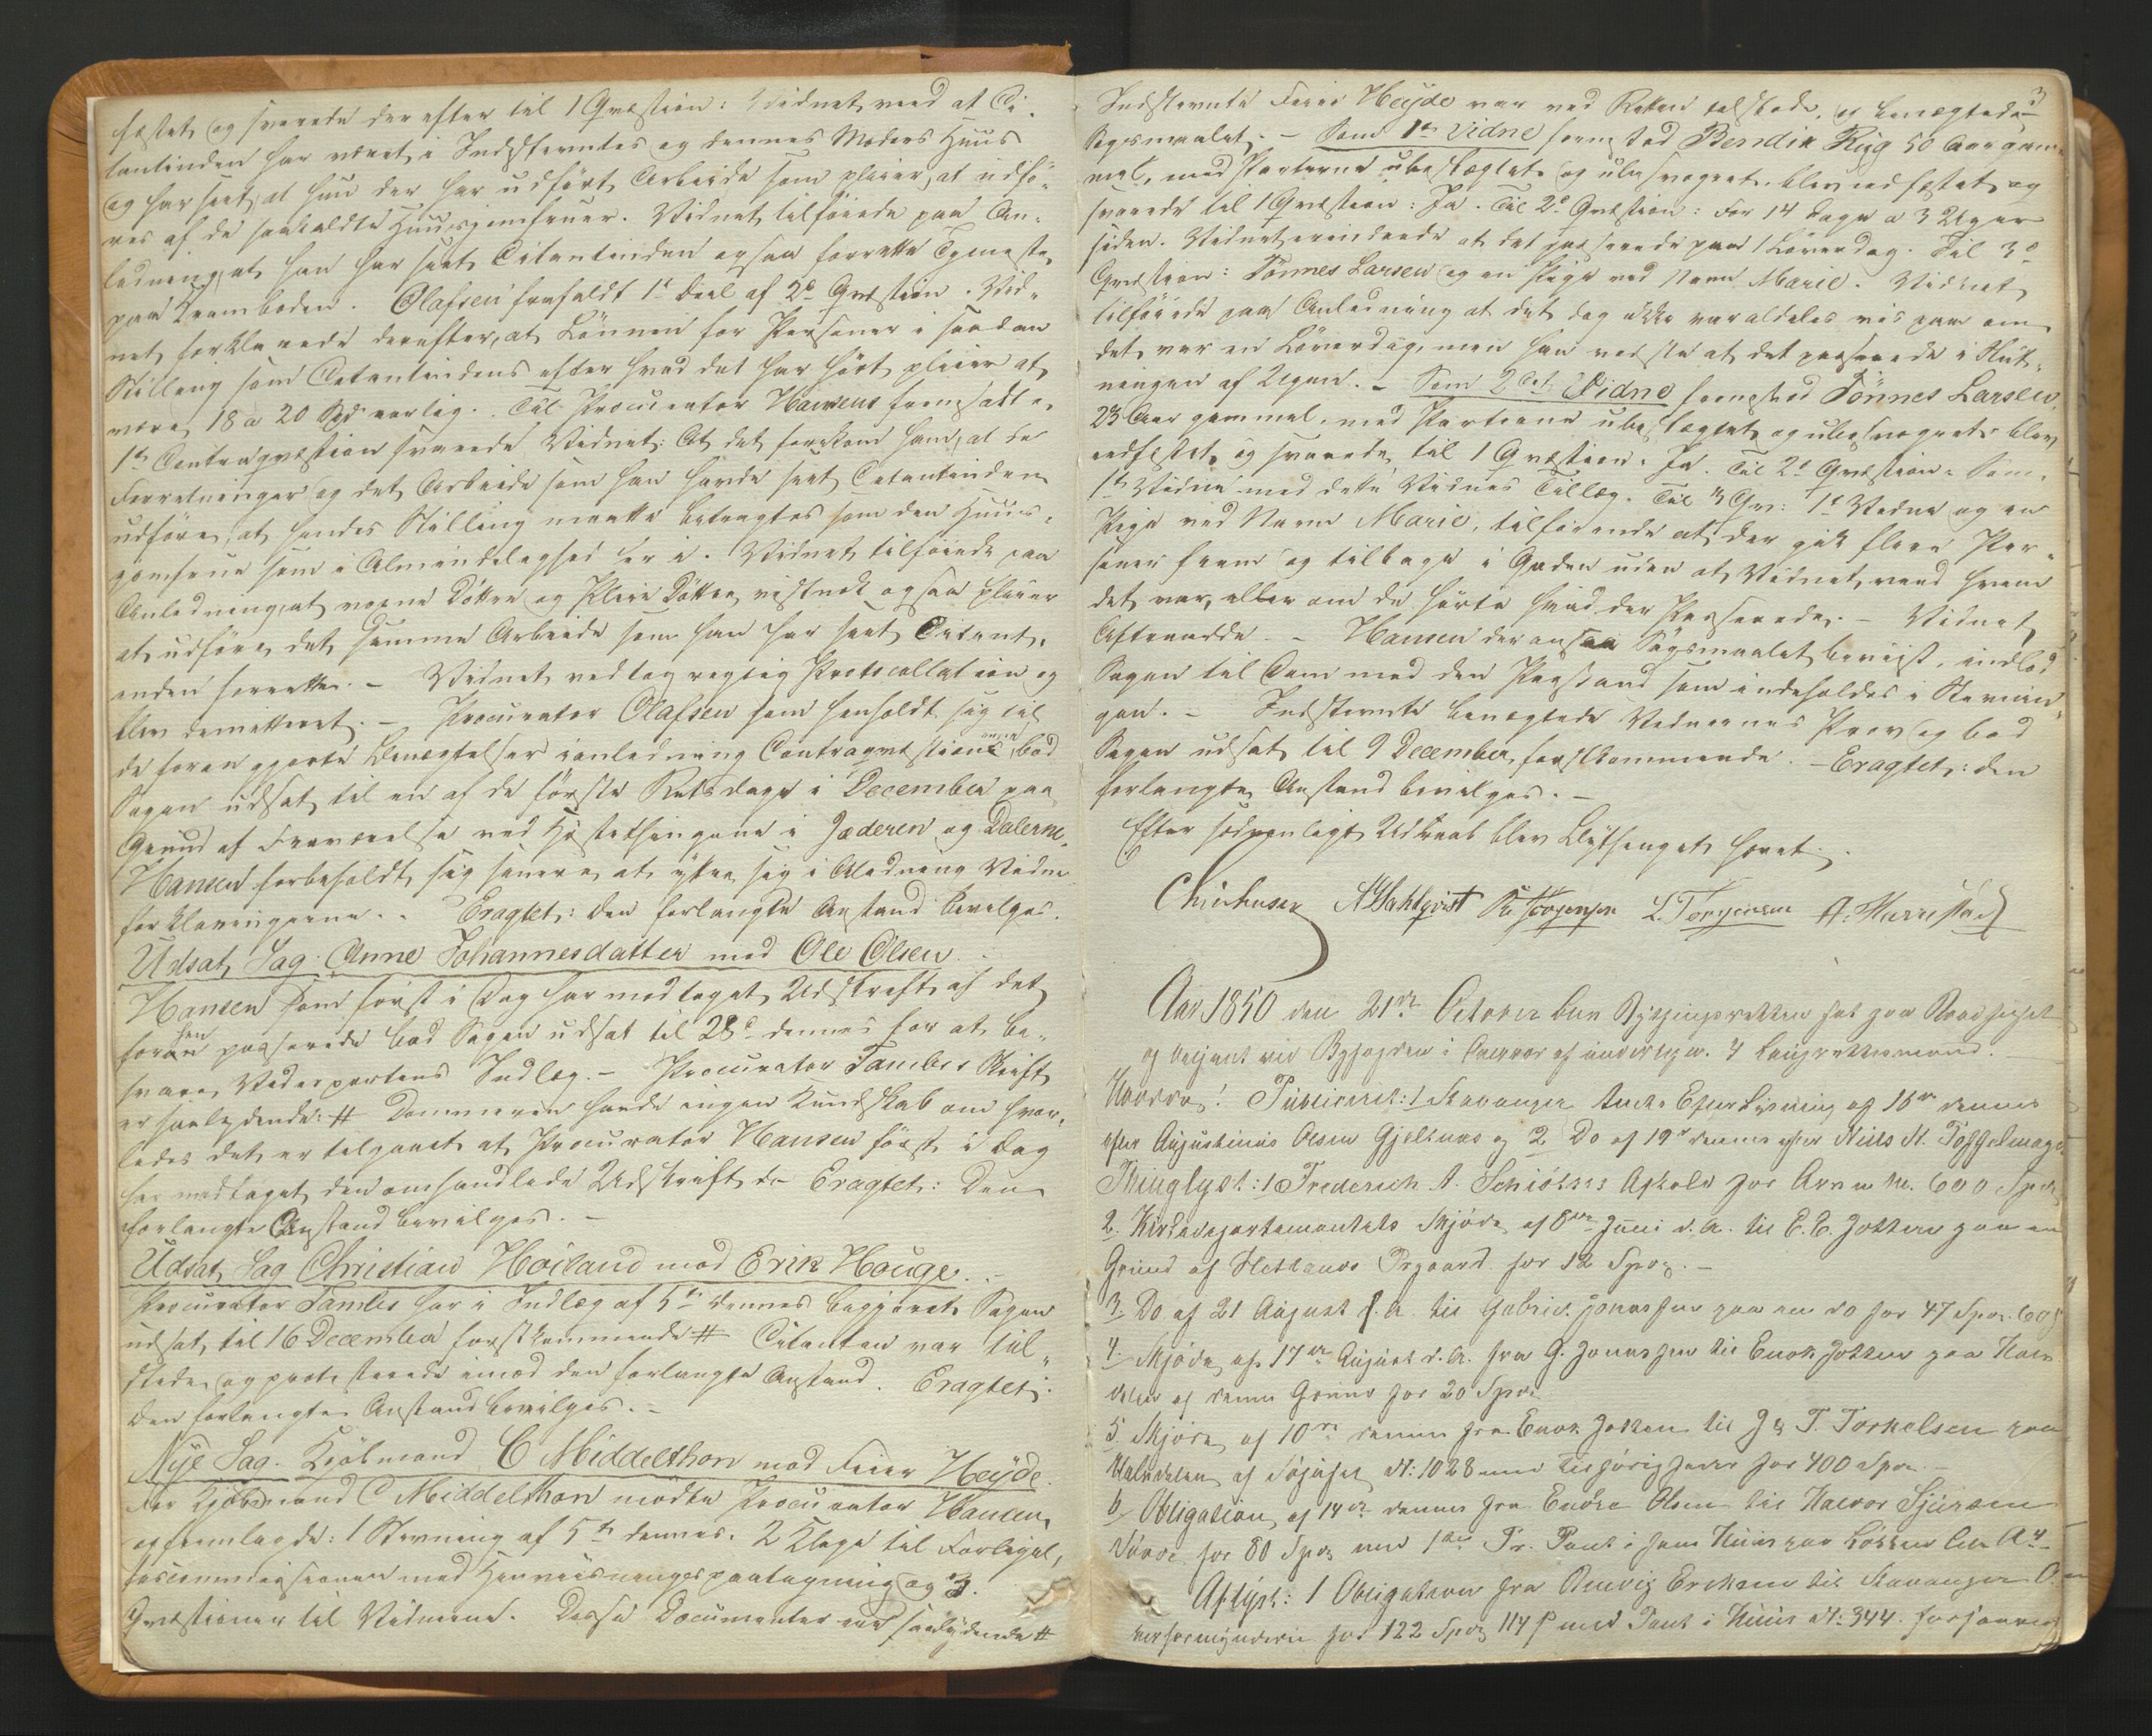 fæstet og svarede derefter til 1 Qvæstion: Vidnet veed at Ci-
tantinden har været i Indstevntes og dennes Moders Huus
og har seet, at hun der har udført Arbeide som pleier at udfø-
res af de saakaldte Huusjomfruer. Vidnet tilføiede paa An-
ledning, at han har seet Citantinden ogsaa forrette Tjeneste
paa Kramboden. Olafsen frafaldt 1e Deel af 2d Qvæstion. Vid-
net forklarede derefter, at Lønnen for Personer i saadan
Stilling som Citantindens efter hvad det har hørt pleier at
være 18 a 20 Spd aarlig. Til Procurator Hansens fremsatte
1te Contraqvæstion svarede Vidnet: At det forekom ham, at de
Forretninger og det Arbeide som han havde seet Citantinden
udføre, at hendes Stilling maatte betragtes som den Huus-
jomfrue som i Almindelighed er i. Vidnet tilføiede paa
Anledning, at voxne Døttre og Pleie Døttre vistnok ogsaa pleier
at udføre det samme Arbeide som han har seet Citant-
inden forrette. – Vidnet vedtog rigtig Protocollation og
blev demitteret. – Procurator Olafsen som henholdt sig til
de foran gjorte Benægtelser i anledning Contraqvæstionerne, bad
Sagen udsat til en af de første Retsdage i December paa
Grund af Fraværelse ved Høstethingene i Jæderen og Dalerne.
Hansen forbeholdt sig senere at ytre sig i Anledning Vidne
forklaringerne. – Eragtet: den forlangte Anstand bevilges.
Udsat Sag: Anne Johannesdatter mod Ole Olsen.
Hansen som først i Dag har modtaget Udskrift af det
foranhen passerede bad Sagen udsat til 28d dennes for at be-
svare Vederpartens Indlæg. – Procurator Tambes Skrift
er saalydende: # Dommeren havde ingen Kundskab om hvor-
ledes det er tilgaaet at Procurator Hansen først i Dag
har modtaget den omhandlede Udskrift da Eragtet: Den
forlangte Anstand bevilges. –
Udsat Sag Christian Høiland mod Erik Houge. –
Procurator Tambes har i Indlæg af 5te dennes begjæret Sagen
udsat til 16 December førstkommende # Citanten var til
stede og protesterede imod den forlangte Anstand. Eragtet:
den forlangte Anstand bevilges. –
Nye Sag. Kjøbmand C Middelthon mod Feier Heyde.
For Kjøbmand C Middelthon mødte Procurator Hansen,
og fremlagde: 1 Stevning af 5te dennes. 2 Klage til Forligel-
sescommissionen med Henviisningspaategning og 3.
Qvæstioner til Vidnerne. Disse Documenter ere saalydende #
3
Indstevnte Feier Heyde var ved Retten tilstede, og benegtede
Søgsmaalet. – Som 1te Vidne fremstod Bendix Rüg 50 Aar gam-
mel, med Parterne ubeslægtet og ubesvogret, blev edfæstet og
svarede til 1 Qvæstion: Ja. Til 2d Qvæstion: For 14 Dage a 3 Uger
siden. Vidnet erindrede at det passerede paa 1 Løverdag. Til 3d
Qvæstion: Tønnes Larsen og en Pige ved Navn Marie. Vidnet
tilføiede paa Anledning at det dog ikke var aldeles vis paa om
det var en Løverdag, men han vedste at det passerede i Slut-
ningen af Ugen. – Som 2det Vidne fremstod Tönnes Larsen,
23 Aar gammel, med Parterne ubeslægtet og ubesvogret blev
edfæstet og svarede til 1 Qvæstion: Ja. Til 2d Qvæstion: Som
1te Vidne med dette Vidnes Tillæg. Til 3 Qv: 1te Vidne og en
Pige ved Navn Marie, tilføiende at der gik flere Per-
soner frem og tilbage i Gaden uden at Vidnet veed hvem
det var, eller om de hørte hvad der Passerede. – Vidnet
Aftraadde. – Hansen der ansaa Søgsmaalet beviist, indlod
Sagen til Dom med den Paastand som indeholdes i Stevnin-
gen. – Indstevnte benegtede Vidnernes Prov og bad
Sagen udsat til 9 December førstkommende. – Eragtet: den
forlangte Anstand bevilges. –
Efter sædvanligt Udraab blev Bythinget hævet. –
Aar 1850 den 21de October blev Bythingsretten sat paa Raadhuset
og betjent ved Byfogden i Overvær af undertegn. 4 Laugrettesmænd. –
Hvorda! Publiceret: 1 Stavanger Efterlysning af 16de dennes
efter Augustinus Olsen Gjeltnes og 2 Do af 19de dennes efter Niels N.
Thinglyst: 1 Frederich A. Schiötzes Afkald for Arv 600 Spd
2. Kirkedepartementets Skjøde af 8de Juni d. A. til E. E. paa en
Grund af Hetlands Prgaard for 12 Spd. –
3. Do af 21 August f. A. til Gabriel Jonassen paa en do for 47 Spd. 60 s
4. Skjøde af 17de August d. A. fra G. Jonassen til Enok paa Halv-
delen af denne Grund for 20 Spd.
5 Skjøde af 10de dennes fra Enok til T. Torkelsen paa
Halvdelen af Søhuset N: 1028 med tilhørighed for 400 Spd. –
6 Obligation af 14de dennes fra Endre Olsen til Halvor Sjursen
for 80 Spd med 1ste Pr. Pant i hans Huus paa
Aflyst: 1 Obligation fra Erksen til Stavanger O-
verformynderie for 122 Spd 114 s med Pant i Huus N: 344.